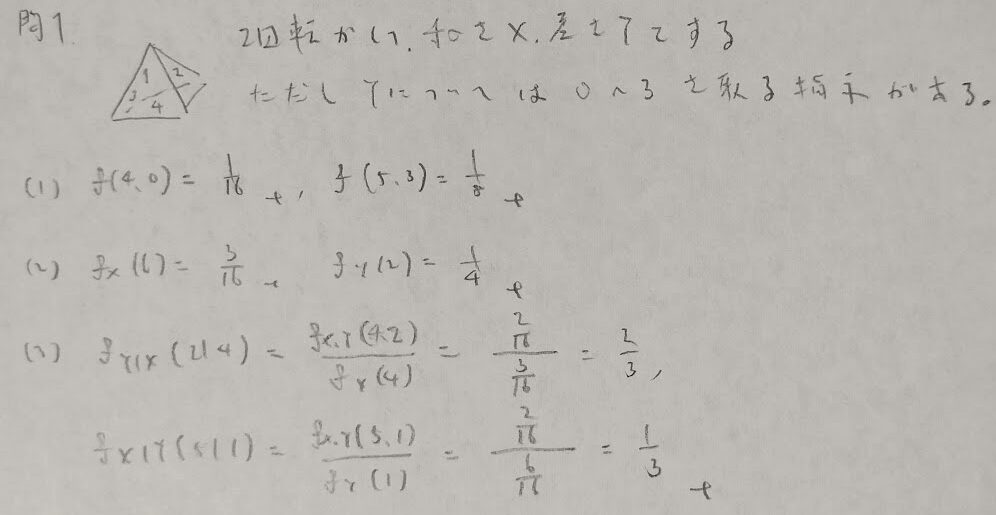 問1 2回転がし、和をX、差をYとする
1 2 3 4
ただしYについては0~3を取る指示がある。
(1) f(4,0) = 1/16, f(5,3) = 1/8
(2) fx(6) = 3/16 fY(2) = 1/4
(3) fY|X(2|4) = fX,Y(4,2)/fX(4) = (2/16)/(3/16) = 2/3,
fX|Y(5|1) = fX,Y(5,1)/fY(1) = (2/16)/(6/16) = 1/3